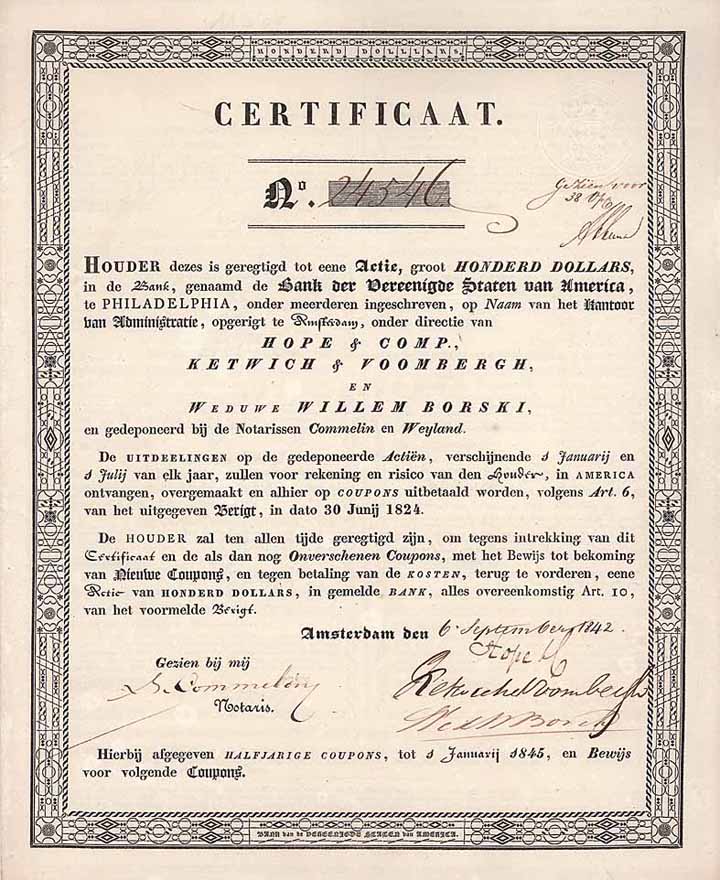 HONDERD DOLLLERS.
CERTIFICAAT.
No. 24546
Gezien voor
38 Cts
HOUDER dezes is geregtigd tot eene Actie, groot HONDERD DOLLARS,
in de Bank, genaamd de Bank der Vereenigde Staten van America,
te PHILADELPHIA, onder meerderen ingeschreven, op Naam van het Kantoor
van Administratie, opgerigt te Amsterdam, onder directie van
HOPE & COMP.,
KETWICH & VOOMBERGH,
EN
WEDUWE WILLEM BORSKI,
en gedeponeerd bij de Notarissen Commelin en Weyland.
De UITDEELINGEN op de gedeponeerde Actiën, verschijnende 1 Januarij en
1 Julij van elk jaar, zullen voor rekening en risico van den Houder, in AMERICA
ontvangen, overgemaakt en alhier op COUPONS uitbetaald worden, volgens Art. 6,
van het uitgegeven Berigt, in dato 30 Junij 1824.
De HOUDER zal ten allen tijde geregtigd zijn, om tegens intrekking van dit
Certificaat en de als dan nog Onverschenen Coupons, met het Bewijs tot bekoming
van Nieuwe Coupons, en tegen betaling van de KOSTEN, terug te vorderen, eene
Actie van HONDERD DOLLARS, in gemelde BANK, alles overeenkomstig Art. 10,
van het voormelde Berigt.
Amsterdam den 6 September 1842.
Hope &
Gezien bij mij
Ketwich & Voombergh
S. Commelin
Notaris.
Wed W Borski
Hierbij afgegeven HALFJARIGE COUPONS, tot 1 Januarij 1845, en Bewijs
voor volgende Coupons.
BANK van de VEREENIGDE STATEN van AMERICA.